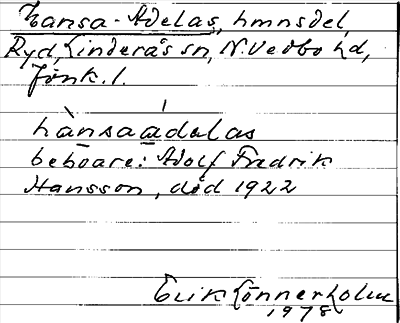 Hansa-Adelas, hmnsdel,
Ryd, Linderås sn, N. Vedbo hd,
Jönk. l.
hànsaadalas
beboare: Adolf Fredrik
Hansson, död 1922
Erik Lönnerholm
1978